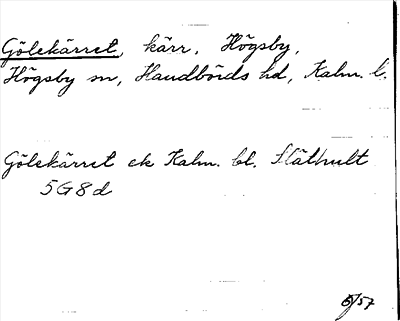 Gölekärret, kärr, Högsby,
Högsby sn, Handbörds hd, Kalm. l.
Gölekärret ek Kalm. bl. Slättult
5G8d
5/57